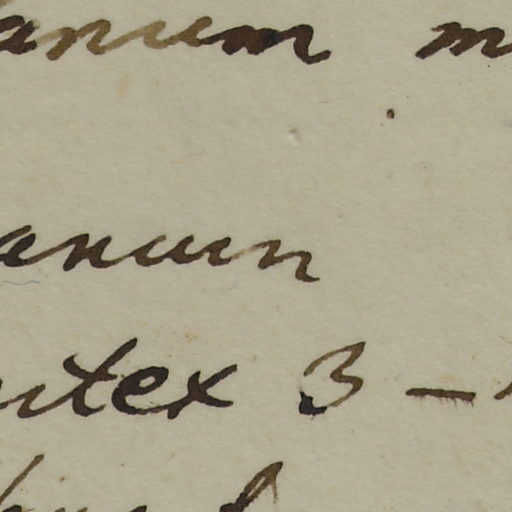 anum m
anum
utex 3 –